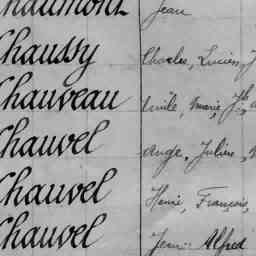 Chaumont Jean
Chaussy Charles, Lucien, J
Chauveau Emile, Marie, Jph
Chauvel Ange, Julien,
Chauvel Henri, François,
Chauvel Jean-Alfred